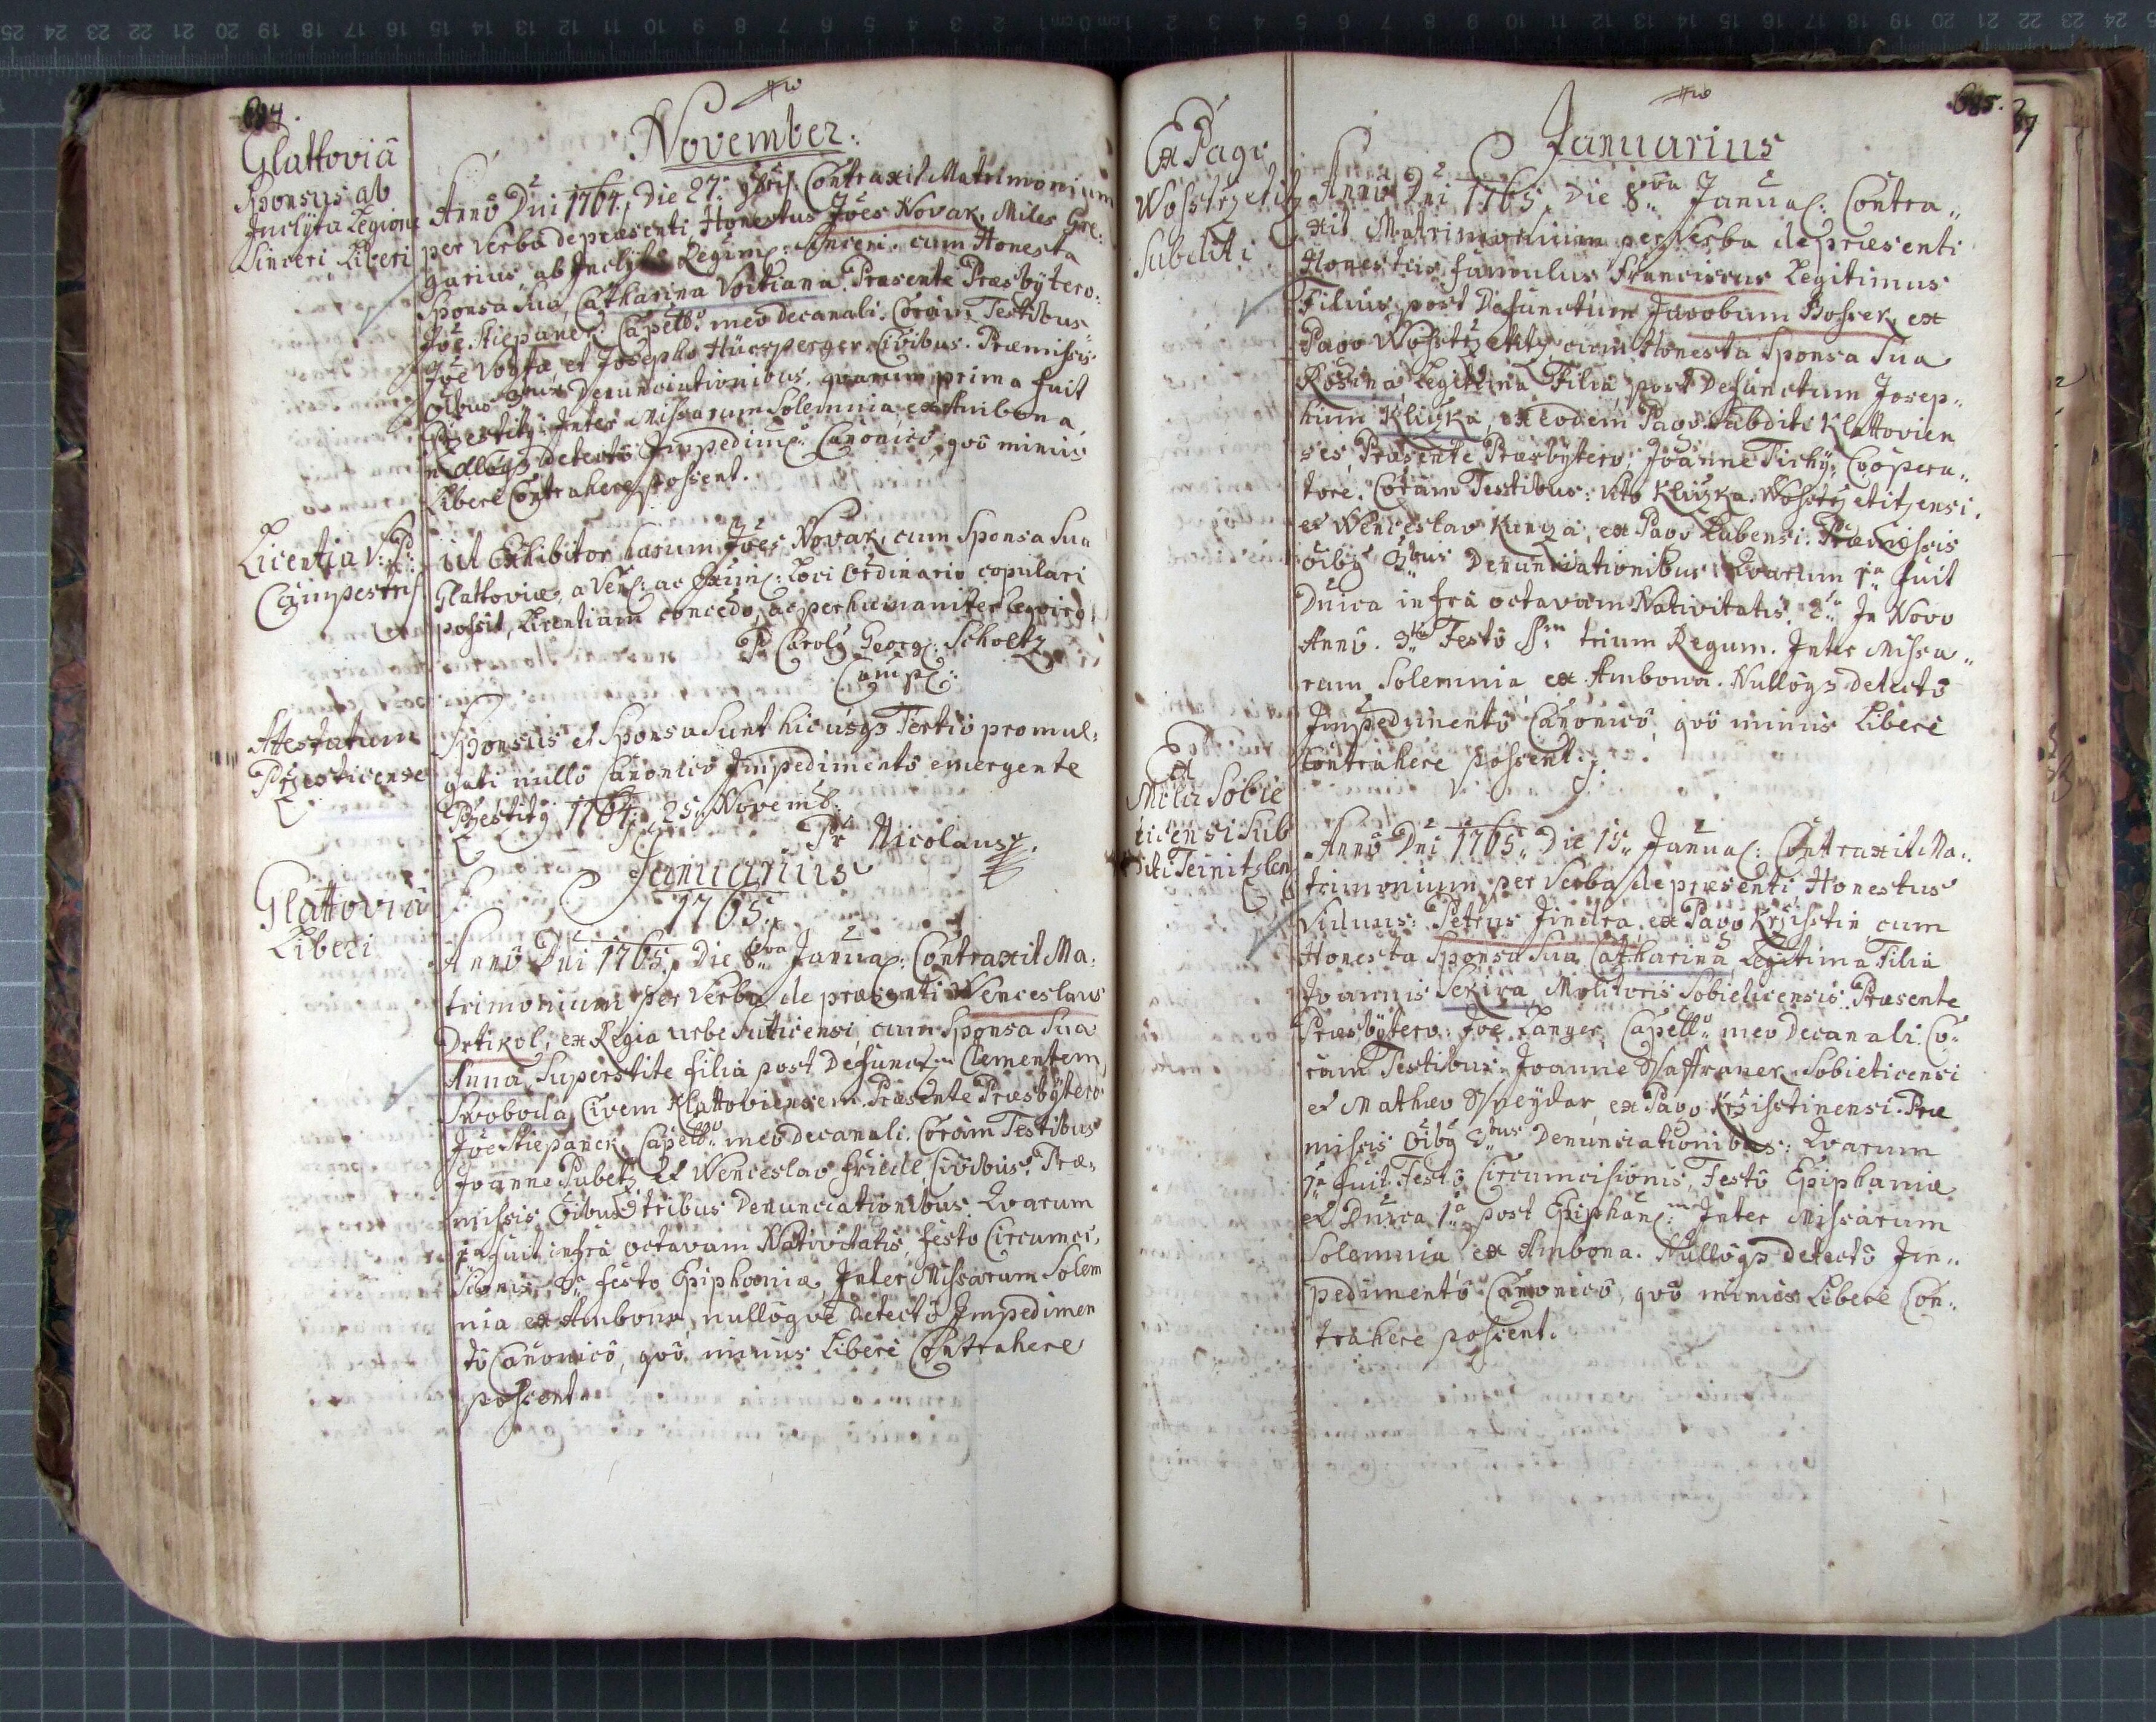 694.
November.
Glattoviâ
Sponsus ab
Inclÿta Legione
Sinceri Liberi
Annô Dni 1764. Die 27. 9bris. Contraxit Matrimonium
per Verba de præsenti Honestus Jôes Novak, Miles Gre:
garius, ab Inclÿto Regim: Sinceri. cum Honesta
Sponsa Sua, Catharina Voitiana. Præsente Præsbÿtero:
Jôe Stiepanek Capellô: meo Decanali. Coram Testibus
Jôe Vogta, et Josepho Hüersperger Civibus. Præmissis
oibus 3bus Denunciationibus, quarum prima fuit
Inter Missarum Solemnia ex Ambona,
nullôq3 detectô Impedim: Canonicô, qvô minus
Liberè Contrahere possent.
Licentia V: P:
Campestris
Ut Exhibitor harum Jôes Novak, cum Sponsa Sua
Glattoviæ, a Ven: ac Loci Ordinario copulari
possit, Licentiam concedo, ac perhumaniter reqviro
P Carolg Georg: Scholtz
Camp:
Attestatum
Przesticense
Sponsus et Sponsa Sunt hic usq3 Tertiô promul:
gati nullô Canonicô Impedimentô emergente
1764. 25 Novemb:
Pr Nicolaus
Januarius
1765.
Glattoviâ
Liberi
Annô Dni 1765. Die 8va Janua: Contraxit Ma:
trimonium per Verba de præsenti Wenceslaus
Drtikol, ex Regia urbe Sutticensi, cum Sponsa Sua
Anna, Superstite filia post Defunct: Clementem
Swoboda, Civem Klattoviensem. Præsente Præsbÿterô
Jôe Stiepanek Capellô meo Decanali. Coram Testibus
Joanne Pubetz et Wenceslao Friedl, Civibus. Præ,
missis Oibus tribus Denunciationibus. Qvarum
1a fuit infra octavam Nativitatis, festo Circumci,
sionis, 3a festo Epiphaniæ, Inter Missarum Solem
nia ex Ambona, nullôqve detectô Impedimen
tô Canonicô, qvô minus Liberè Contrahere
possent.
695.
Januarius
Ex Pago
Wosstrzetitz
Subditi
Annô Dni 1765. Die 8va Janua: Contra„
xit Matrimonium per Verba de præsenti
Honestus famulus Franciscus Legitimus
Filius, post Defunctum Jacobum Bossek, ex
Pago Wosstrzetitz, cum Honesta Sponsa Sua
Rosina, Legitima Filia, post Defunctum Josep„
hum Kliczka, ex eodem Pago. Subditi Klattovien
ses, Præsente Præsbÿtero, Joanne Tichÿ, Coopera„
tore. Coram Testibus: Vito Kliczka Wosstrzetitzensi.
et Wenceslao Kunza, ex Pago Lubensi. Præmissis
oibg 3bus Denunciationibus, Qvarum 1a fuit
Dnica infra octavam Nativitatis. 2a In Novo
Annô. 3tia Festô trium Regum. Inter Missa„
rum Solemnia ex Ambona. Nullôq3 detectô
Impedimentô Canonicô, qvô minus Liberè
Contrahere possent.
Ex
Mola Sobie
ticensi Sub
diti Teinitzlen
Annô Dni 1765„ Die 15„ Janua: Contraxit Ma„
trimonium per Verba de præsenti Honestus
Viduus: Petrus Jindra, ex Pago Krzisstin cum
Honesta Sponsa Sua Catharina, Legitima Filia
Joannis Sekira, Molitoris Sobieticensis. Præsente
Præsbÿtero: Jôe Langer, Capellô meo Decanali. Co:
ram Testibus: Joanne Ssaffranek Sobieticensi
et Mathæo Ssneÿdar ex Pago Krzisstinensi. Præ
missis Oibg 3bus Denunciationibus: Qvarum
1a fuit Festô Circumcisionis, Festô Epiphaniæ
et Dnica 1a post Epiphan: Inter Missarum
Solemnia ex Ambona. Nullôq3 detectô Im„
pedimentô Canonicô, qvô minus Liberè Con„
trahere possent.